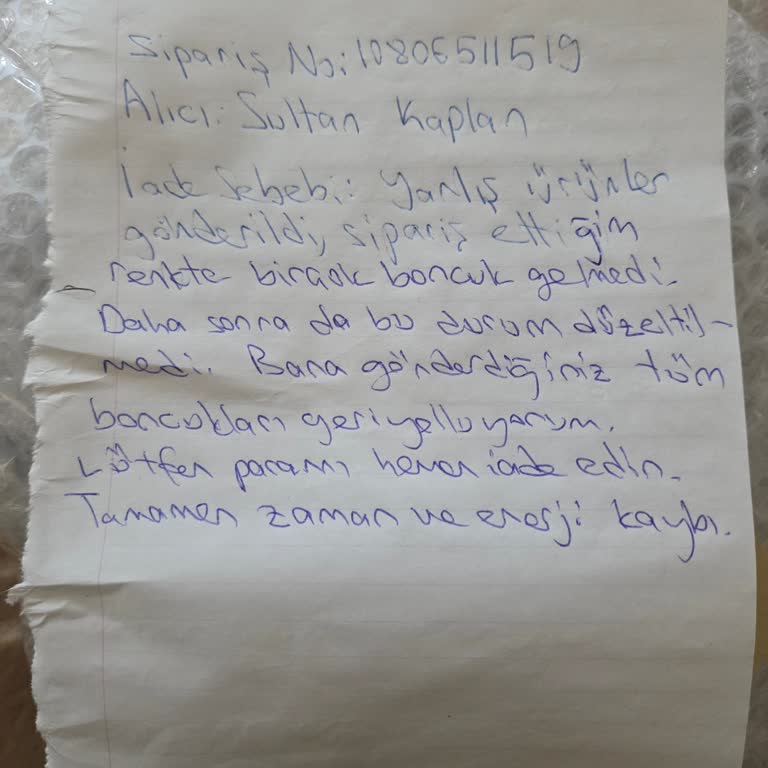 Sipariş No: 10806511519
Alıcı: Sultan Kaplan
İade Sebebi: Yanlış ürünler
gönderildi, sipariş ettiğim
renkte birçok boncuk gelmedi.
Daha sonra da bu durum düzeltil-
medi. Bana gönderdiğiniz tüm
boncukları geri yolluyorum.
Lütfen paramı hemen iade edin.
Tamamen zaman ve enerji kaybı.